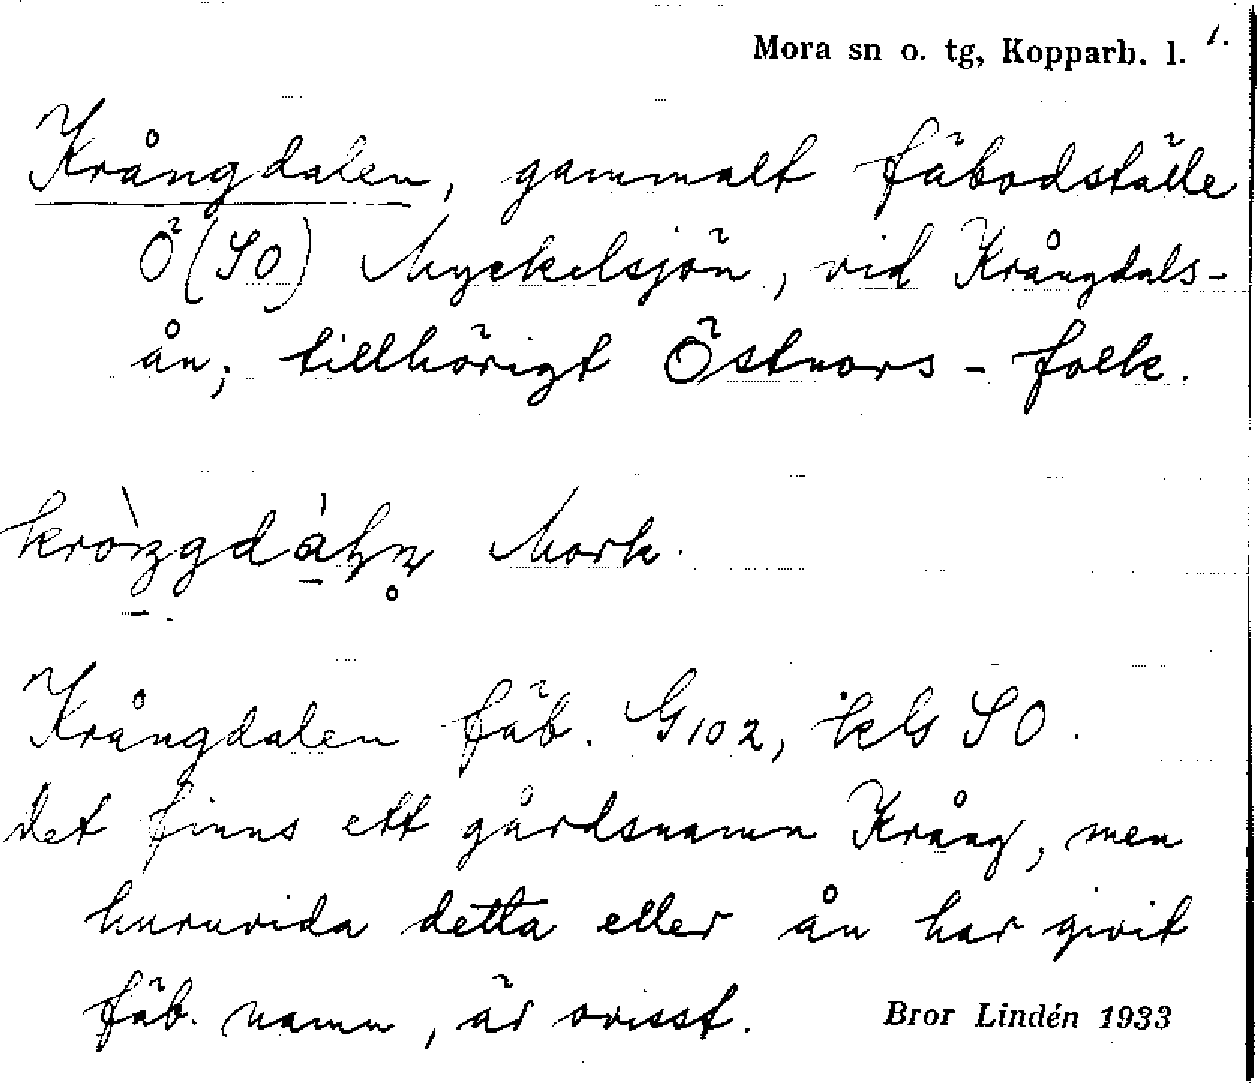 Mora sn o. tg, Kopparb. l. 1.
Krångdalen, gammalt fäbodställe
Ö (SO) Myckelsjön, vid Krångdals-
ån; tillhörigt Östnors-folk.
Mork.
Krångdalen fäb. G102, kls SO.
Det finns ett gårdsnamn Krång, men
huruvida detta eller ån har givit
fäb. namn, är ovisst.
Bror Lindén 1933